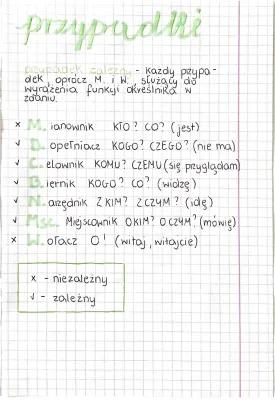 przypadki
przypadek zależny - każdy przypa-
dek, oprócz M. i W. służący do
wyrażenia funkcji określnika w
zdaniu.
x M. ianownik KTO? CO? (jest)
√ D. opełniacz KOGO? CZEGO? (nie ma)
√ C. elownik KOMU? CZEMU (się przyglądam)
√ B. iernik KOGO? CO? (widzę)
√ N. arzędnik Z KIM? Z CZYM? (idę)
√ Msc. Miejscownik O KIM? O CZYM? (mówię)
x W. ołacz O! (witaj, witajcie)
x - niezależny
√ - zależny